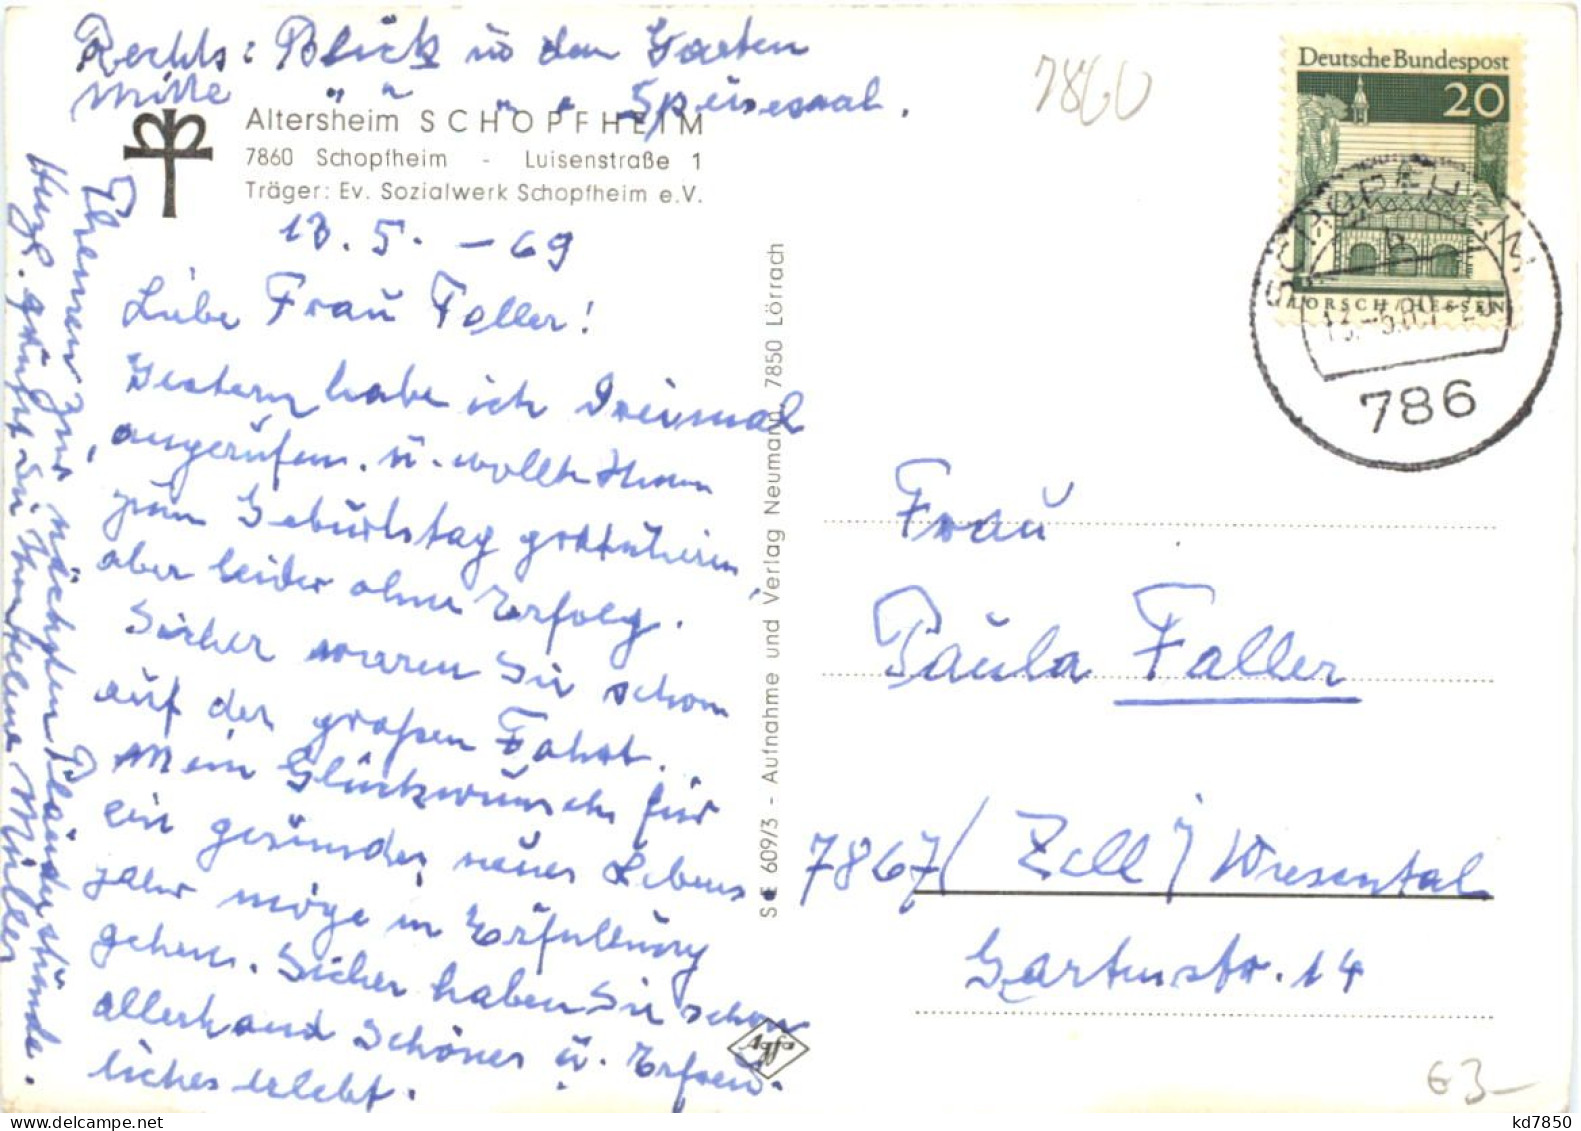 Rechts: Blick in den Garten
Mitte " " " " Speisesaal.
Altersheim SCHOPFHEIM
7860 Schopfheim - Luisenstraße 1
Träger: Ev. Sozialwerk Schopfheim e.V.
13.5. - 69
Liebe Frau Faller!
Gestern habe ich dreimal
angerufen. u. wollte Ihnen
zum Geburtstag gratulieren,
aber leider ohne Erfolg.
Sicher waren Sie schon
auf der großen Fahrt.
Mein Glückwunsch für
ein gesundes, neues Lebens
jahr möge in Erfüllung
gehen. Sicher haben Sie schon
allerhand Schönes u. Erfreu-
liches erlebt.
zur nächsten Plauderstunde.
Herzl. grüßt Sie Ihre Helene Müller
S E 609/3 - Aufnahme und Verlag Neumann 7850 Lörrach
Agfa
7860
Deutsche Bundespost
20
LORSCH/HESSEN
SCHOPFHEIM
b
786
Frau
Paula Faller
7867/ Zell i/ Wiesental
Gartenstr. 14
€ 3-
kd7850